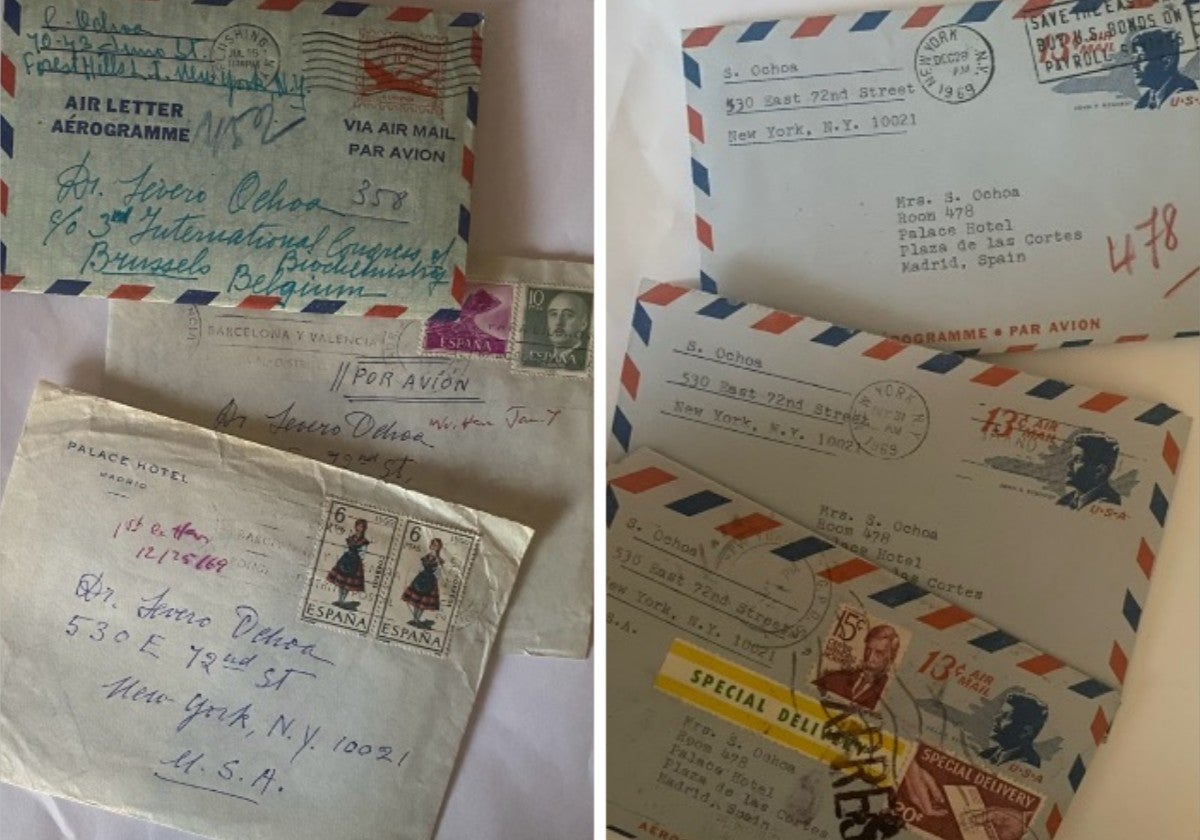 Ochoa
Forest Hills L.I. New York, N.Y.
FLUSHING
AIR LETTER
AÉROGRAMME
VIA AIR MAIL
PAR AVION
358
Dr. Severo Ochoa
c/o 3rd International Congress of
Biochemistry
Brussels
Belgium
BARCELONA Y VALENCIA
ESPAÑA
10
ESPAÑA
POR AVIÓN
Dr. Severo Ochoa
Jan 7
72nd St,
PALACE HOTEL
MADRID
12/25/69
6
PTAS
6
PTAS
ESPAÑA
ESPAÑA
Dr. Severo Ochoa
530 E 72nd St
New York, N.Y. 10021
U.S.A.
S. Ochoa
530 East 72nd Street
New York, N.Y. 10021
NEW YORK N.Y.
DEC 28
PM
1969
BUY U.S. BONDS ON
PAYROLL
13¢
U.S.
Mrs. S. Ochoa
Room 478
Palace Hotel
Plaza de las Cortes
Madrid, Spain
478
AEROGRAMME • PAR AVION
S. Ochoa
530 East 72nd Street
New York, N.Y. 10021
YORK N.Y.
AM
1969
13¢ AIR
MAIL
U·S·A·
Mrs. S. Ochoa
Room 478
Palace Hotel
las Cortes
S. Ochoa
530 East 72nd Street
New York, N.Y. 10021
U.S.A.
15¢
13¢ AIR
MAIL
U·S·A
SPECIAL DELIVERY
Mrs. S. Ochoa
Room 478
Palace Hotel
Plaza de las Cortes
Madrid, Spain
SPECIAL DELIVERY
20¢